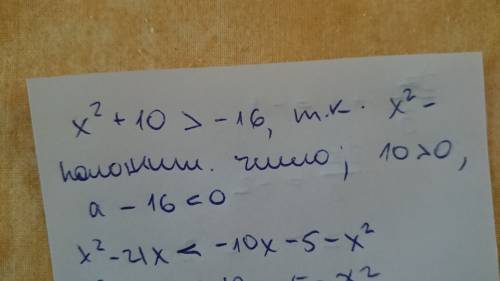 x² + 10 > -16, т.к. x² -
положит. число; 10>0,
а - 16 < 0
x² - 21x < -10x - 5 - x²